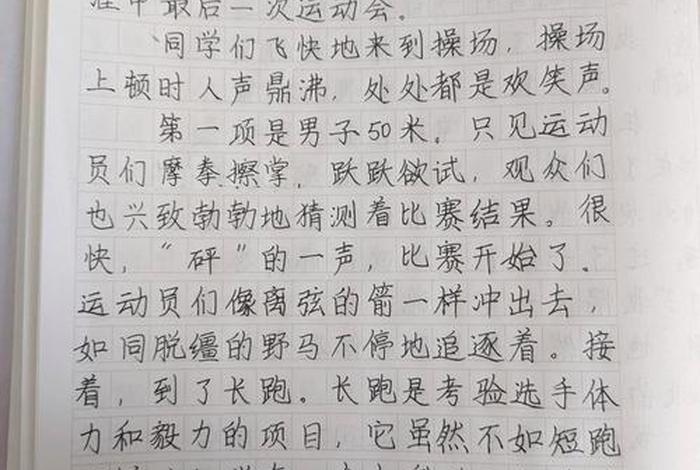 中最后一次运动会。
同学们飞快地来到操场，操场
上顿时人声鼎沸，处处都是欢笑声。
第一项是男子50米。只见运动
员们摩拳擦掌，跃跃欲试，观众们
也兴致勃勃地猜测着比赛结果。很
快，“砰”的一声，比赛开始了。
运动员们像离弦的箭一样冲出去，
如同脱缰的野马不停地追逐着。接
着，到了长跑。长跑是考验选手体
力和毅力的项目，它虽然不如短跑